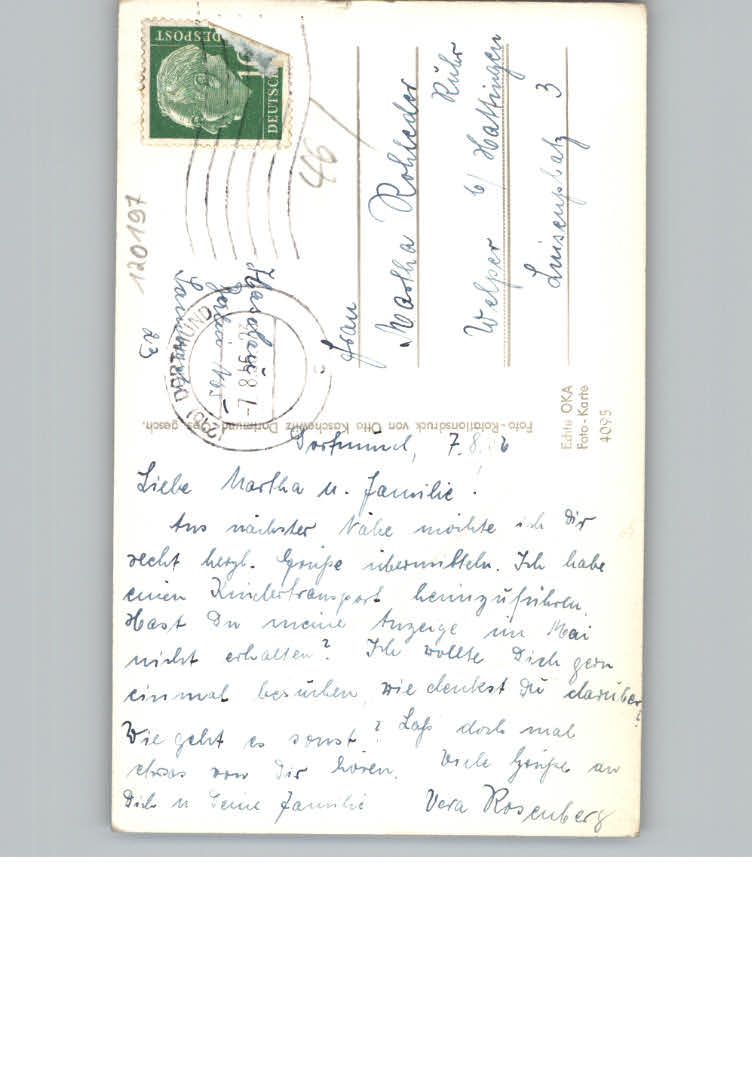 DEUTSCHE
DESPOST
46
120197
Frau
Martha Rohleder
Welper b/ Hattingen
Ruhr
Luisenplatz 3
Berlin N65
23
DORTMUND
-7.8.56
Foto-Rotationsdruck von Otto Kaschewitz Dortmund - Ges. gesch.
Echte OKA
Foto-Karte
4095
Dortmund, 7.8.56
Liebe Martha u. Familie!
Aus nächster Nähe möchte ich Dir
recht herzl. Grüße übermitteln. Ich habe
einen Kindertransport heimzuführen.
Hast Du meine Anzeige im Mai
nicht erhalten? Ich wollte Dich gern
einmal besuchen, wie denkst Du darüber?
Wie geht es sonst? Laß doch mal
etwas von Dir hören. Viele Grüße an
Dich u Deine Familie Vera Rosenberg